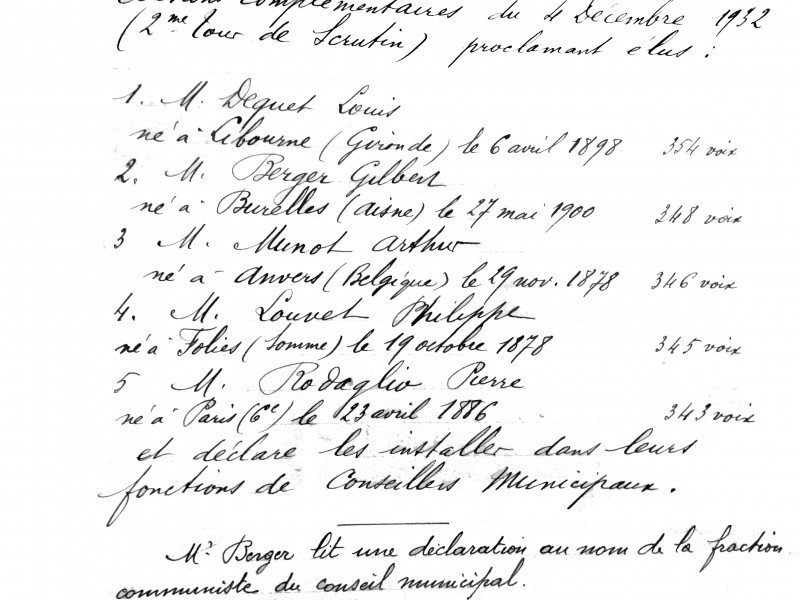 complémentaires du 4 Décembre 1932
(2me tour de Scrutin) proclamant élus :
1. M. Deguet Louis
né à Libourne (Gironde) le 6 avril 1898 354 voix
2. M. Berger Gilbert
né à Burelles (Aisne) le 27 mai 1900 348 voix
3 M. Munot Arthur
né à Anvers (Belgique) le 29 nov. 1878 346 voix
4. M. Louvet Philippe
né à Folies (Somme) le 19 octobre 1878 345 voix
5 M. Rodaglio Pierre
né à Paris (6e) le 23 avril 1886 343 voix
et déclare les installer dans leurs
fonctions de Conseillers Municipaux.
Mr Berger lit une déclaration au nom de la fraction
communiste du conseil municipal.